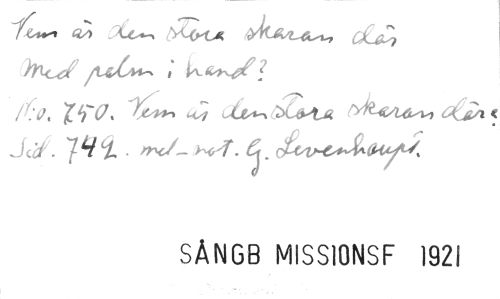 Vem är den stora skaran där
med palm i hand?
N:o. 750. Vem är den stora skaran där?
Sid. 749. mel-not. G. Levenhaupt.
SÅNGB MISSIONSF 1921